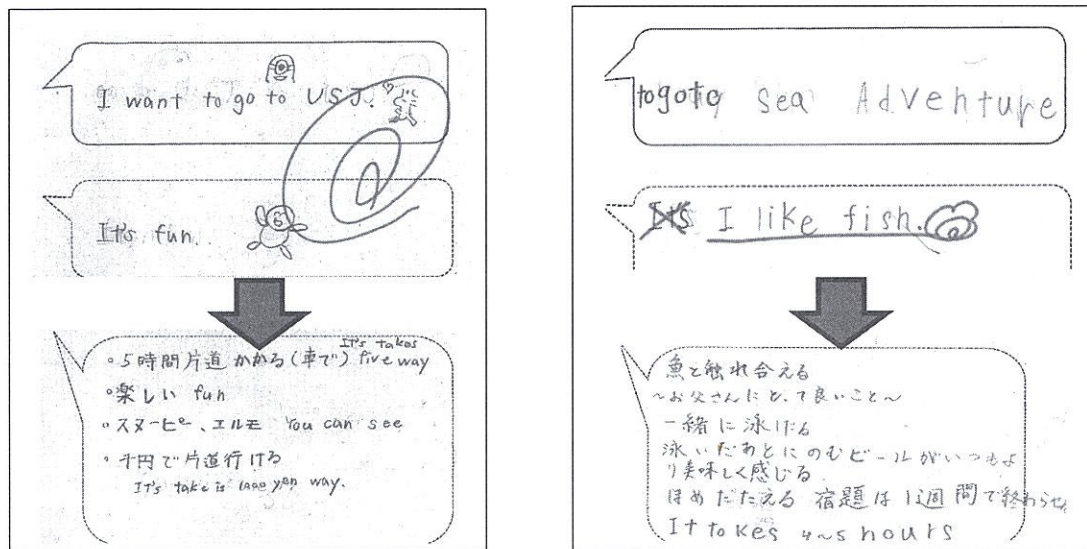 I want to go to USJ.
It's fun.
It's takes
○5時間片道かかる(車で) five way
○楽しい fun
○スヌーピー、エルモ You can see
○千円で片道行ける
It's take is 1000 yen way.
togoto sea Adventure
It's I like fish.
魚と触れ合える
〜お父さんにとって良いこと〜
一緒に泳げる
泳いだあとにのむビールがいつもよ
り美味しく感じる
ほめたたえる 宿題は1週間で終わらせ
It takes 4~5 hours